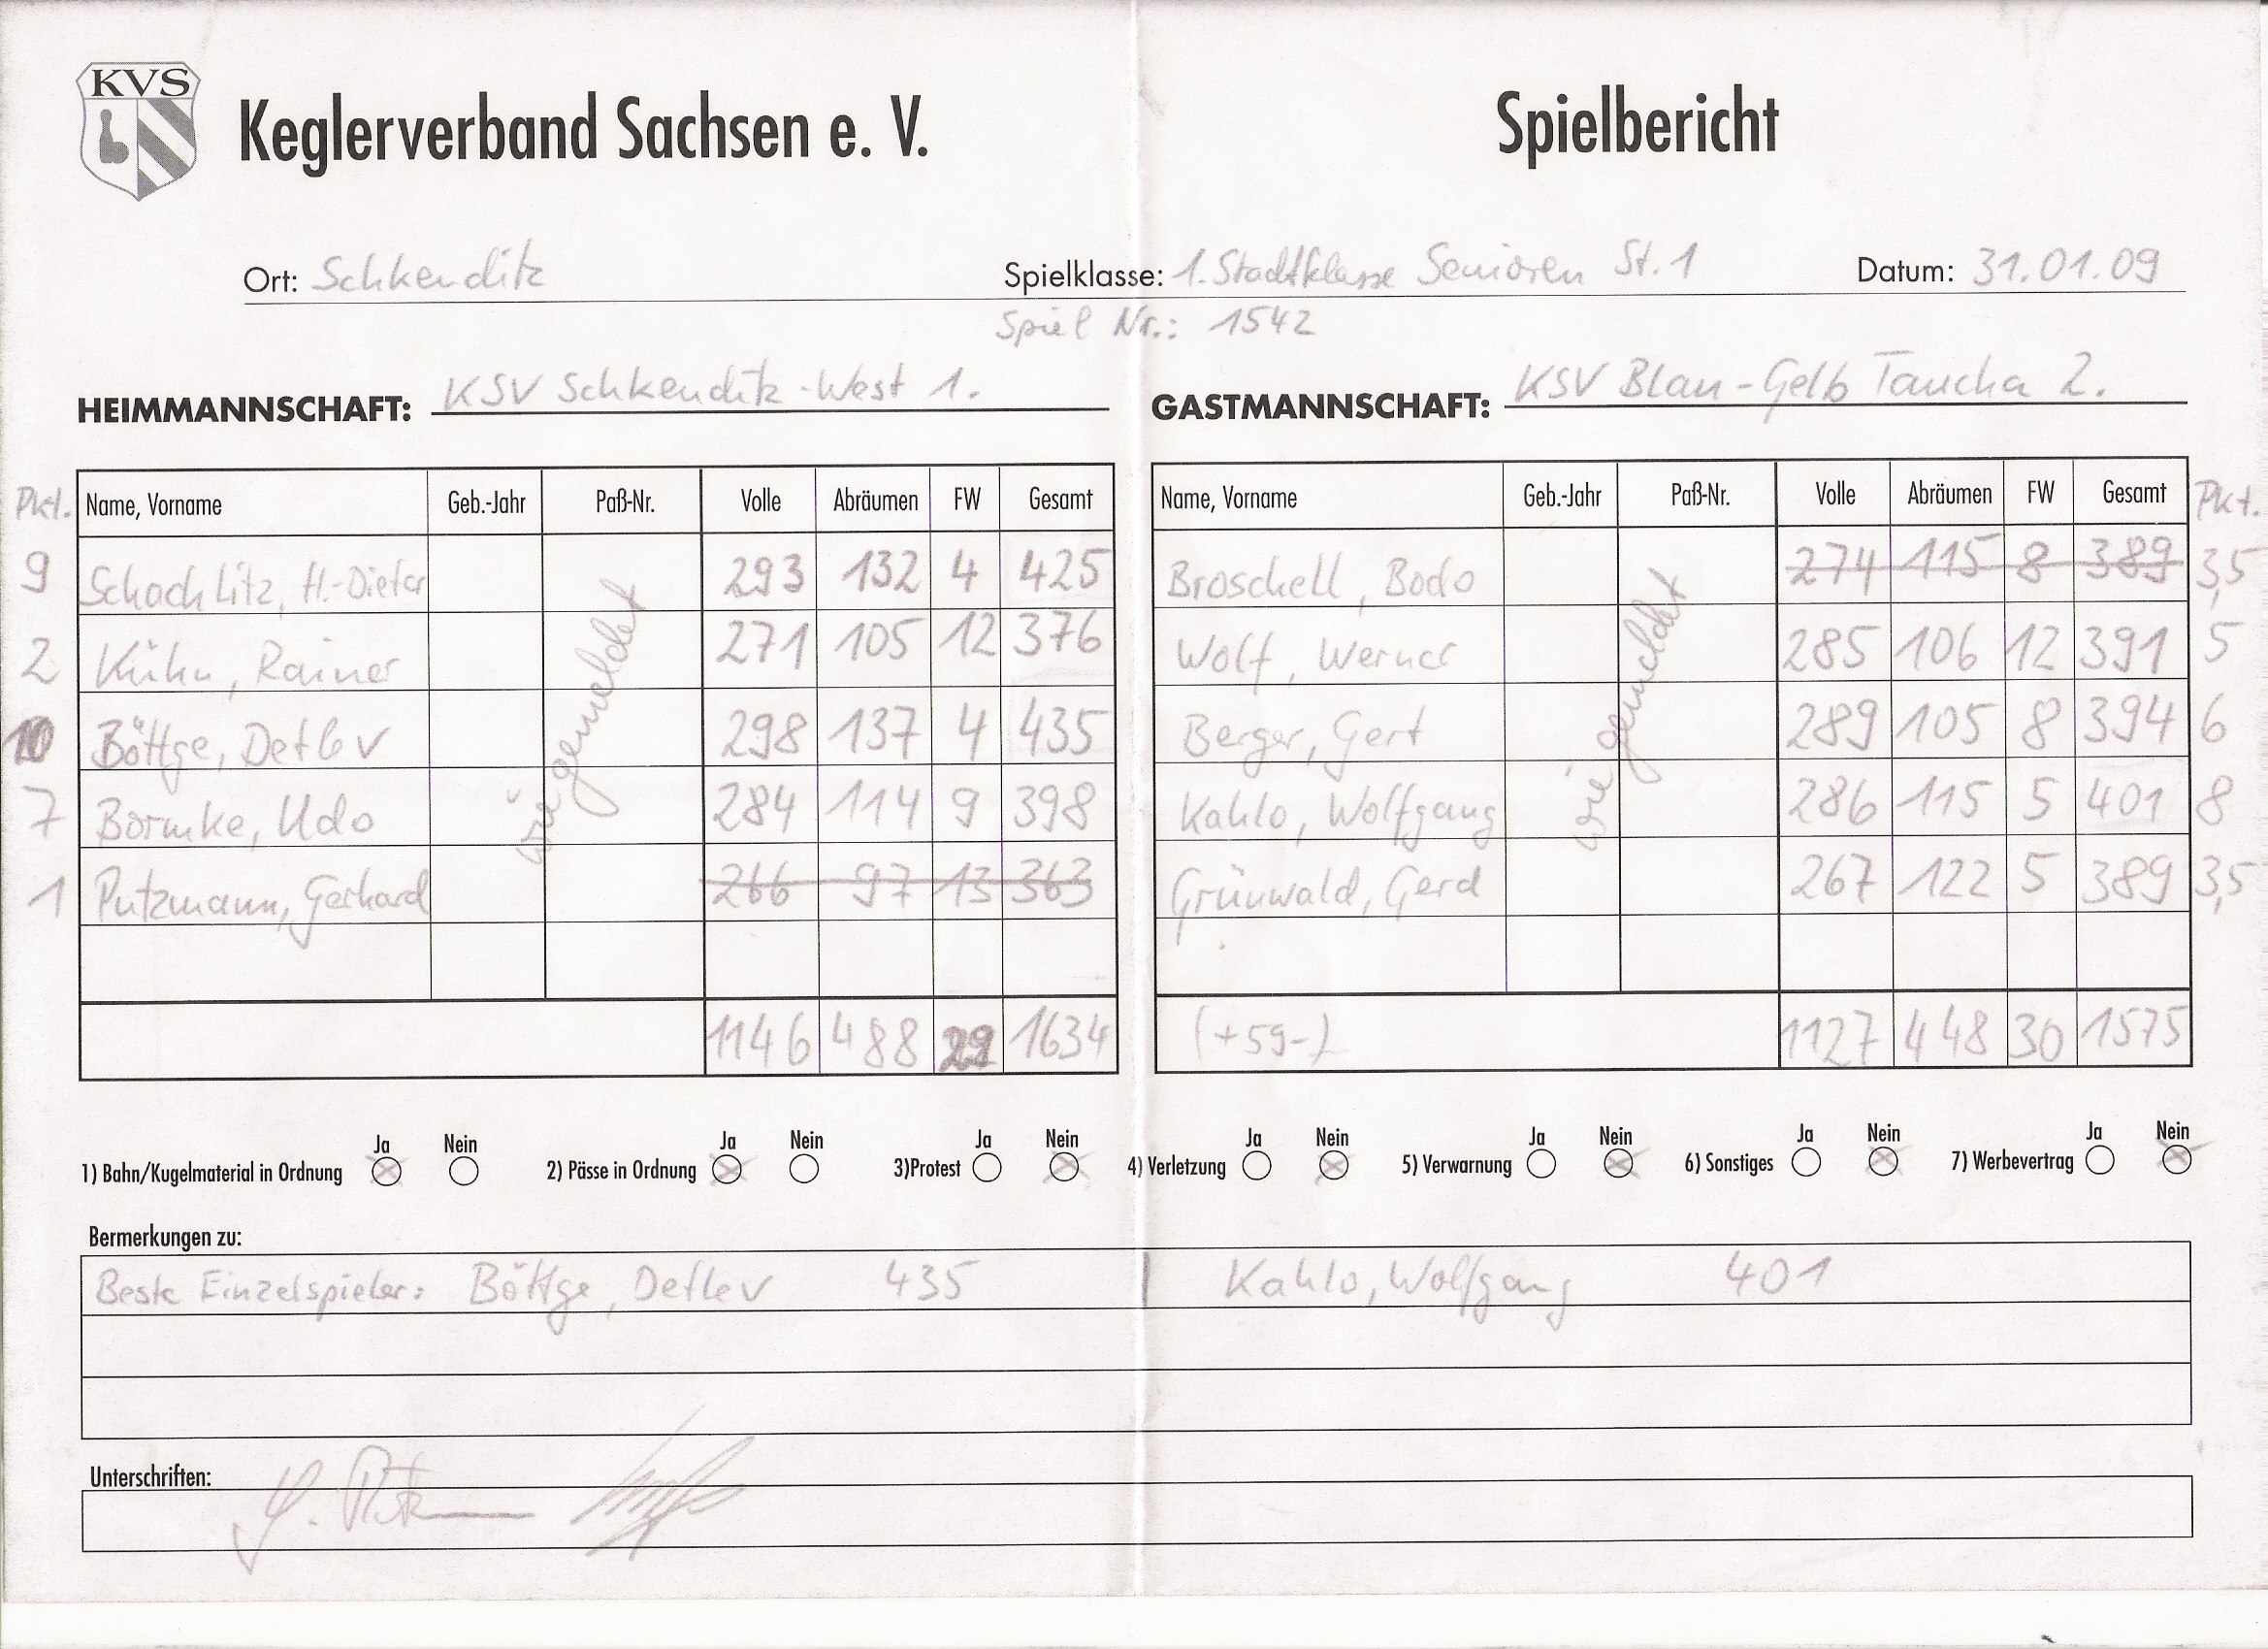 KVS
Keglerverband Sachsen e. V. Spielbericht
Ort: Schkeuditz Spielklasse: 1. Stadtklasse Senioren St. 1 Datum: 31.01.09
Spiel Nr.: 1542
HEIMMANNSCHAFT: KSV Schkeuditz-West 1. GASTMANNSCHAFT: KSV Blau-Gelb Taucha 2.
Pkt. Name, Vorname Geb.-Jahr Paß-Nr. Volle Abräumen FW Gesamt Name, Vorname Geb.-Jahr Paß-Nr. Volle Abräumen FW Gesamt Pkt.
9 Schachlitz, H.-Dieter 293 132 4 425 Broschell, Bodo 274 115 8 389 3,5
2 Kühn, Rainer 271 105 12 376 Wolf, Werner 285 106 12 391 5
10 Böttge, Detlev 298 137 4 435 Berger, Gert 289 105 8 394 6
7 Bormke, Udo 284 114 9 398 Kahlo, Wolfgang 286 115 5 401 8
1 Putzmann, Gerhard 266 97 13 363 Grünwald, Gerd 267 122 5 389 3,5
wie gemeldet wie gemeldet
1146 488 29 1634 (+59-) 1127 448 30 1575
Ja Nein Ja Nein Ja Nein Ja Nein Ja Nein Ja Nein Ja Nein
1) Bahn/Kugelmaterial in Ordnung 2) Pässe in Ordnung 3)Protest 4) Verletzung 5) Verwarnung 6) Sonstiges 7) Werbevertrag
Bermerkungen zu:
Beste Einzelspieler: Böttge, Detlev 435 | Kahlo, Wolfgang 401
Unterschriften: